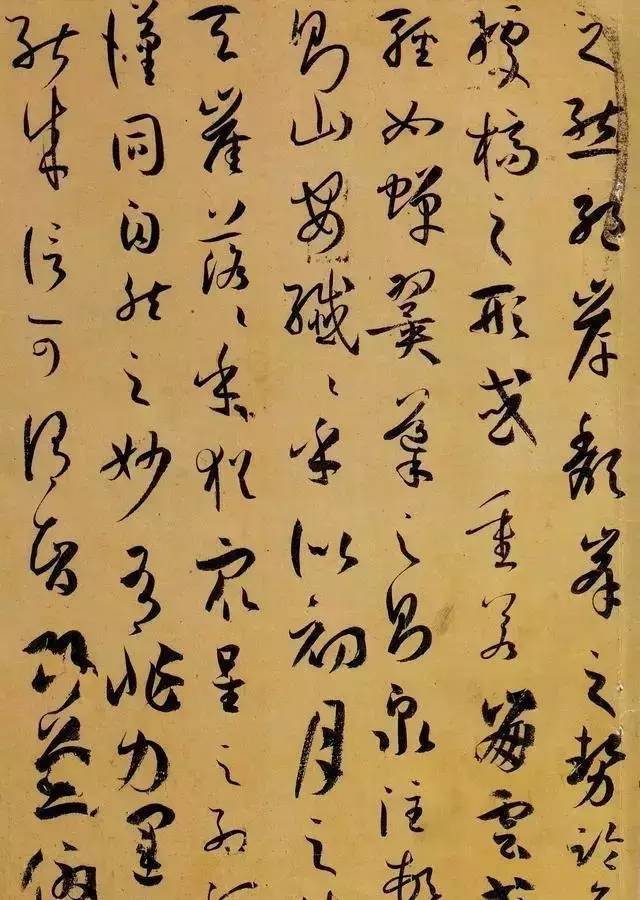 之態絕岸頹峰之勢臨危
據槁之形或重若崩雲或
輕如蟬翼導之則泉注頓
則山安纖〻乎似初月之
天崖落〻乎猶眾星之列河
漢同自然之妙有非力運
能成信可謂智巧兼優